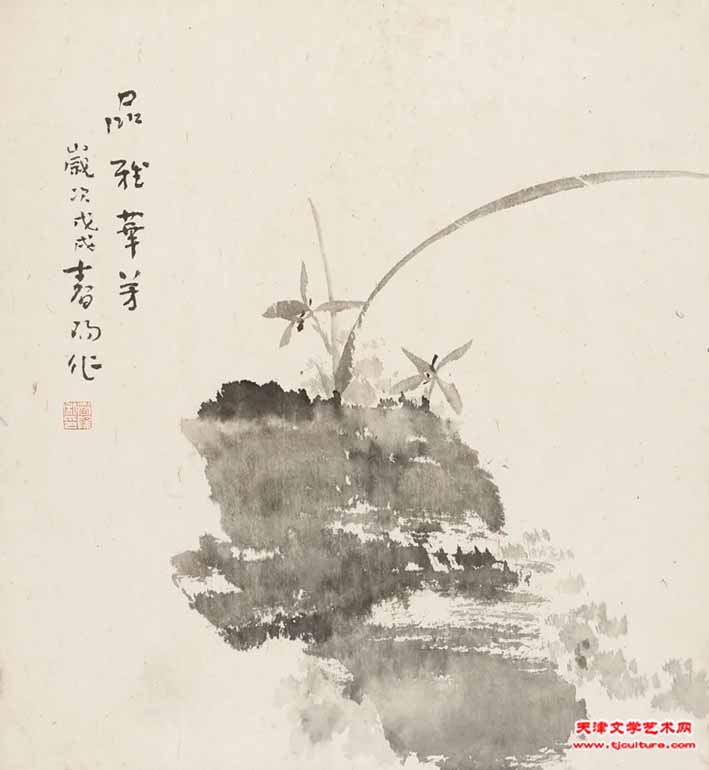 品雅華芳
歲次戊戌春陽作
天津文学艺术网
www.tjculture.com